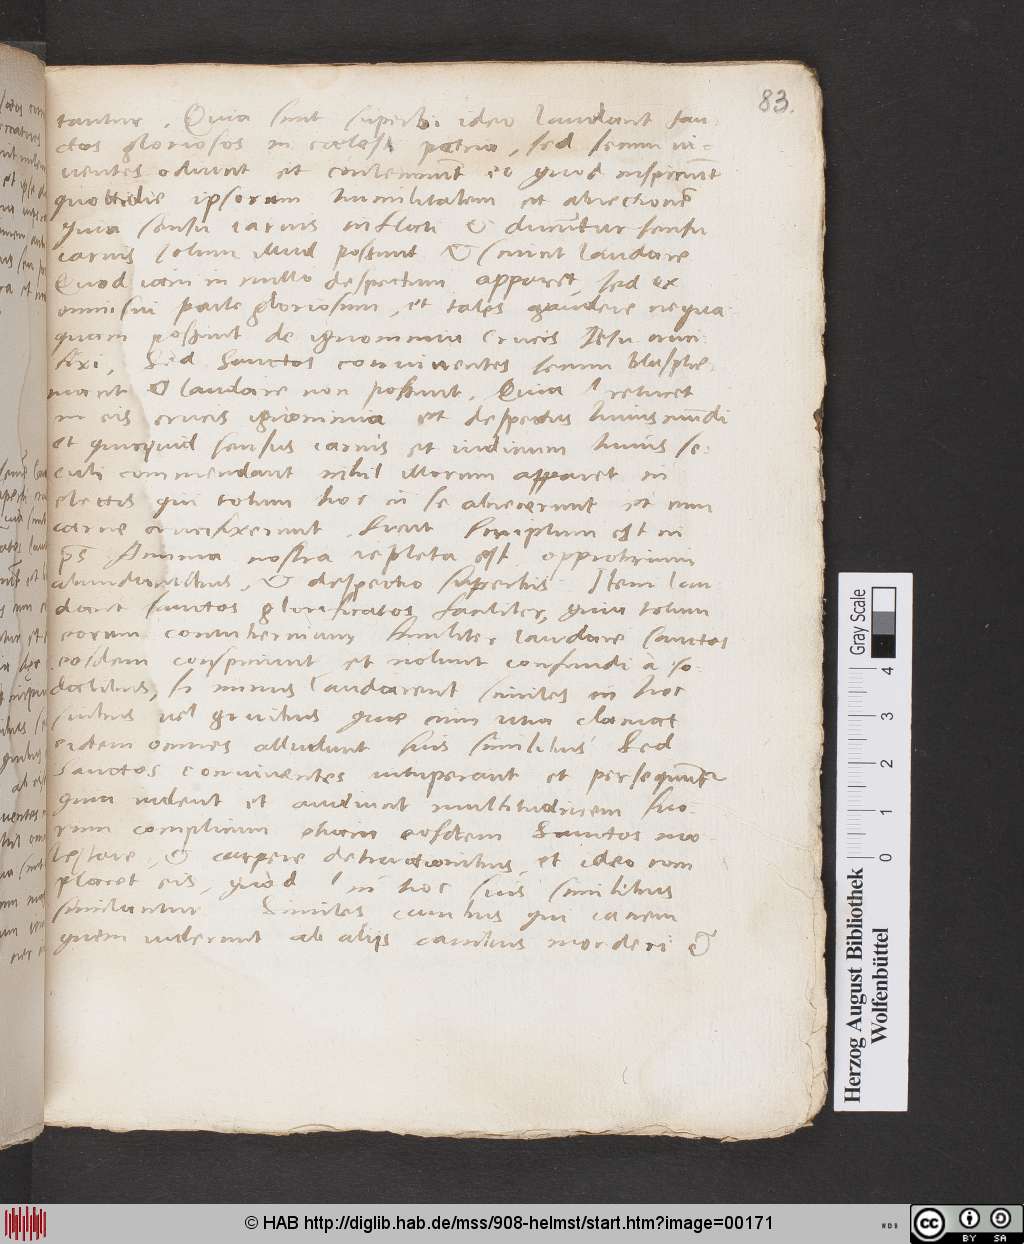 83.
tantur. Quia sunt superbi ideo laudant san
ctos gloriosos in coelesti patria, sed secum vi-
uentes oderunt et contemnunt eo quod inspiciunt
quottidie ipsorum humilitatem et abiectionē
Quia sensu carnis inflati & ducuntur sensu
carnis solum illud possunt & sciunt laudare
Quod iam in nullo despectum apparet, sed ex
omni sui parte gloriosum, et tales gaudere nequa
quam possunt de ignominia crucis Jesu cruci
fixi, Sed Sanctos conuiuentes secum blasphe-
mant & laudare non possunt. Quia relucet
in eis crucis ignominia et despectus huius mūdi
et quicquid sensus carnis et iudicium huius se-
culi commendant nihil illorum apparet in
electis qui totum hoc in se abiecerunt et cum
carne crucifixerunt. Sicut scriptum est in
ps Anima nostra repleta est opprobrium
abundantibus, & despectio superbis. Item lau
dant sanctos glorificatos faciliter, quia totum
eorum contubernium similiter laudare sanctos
eosdem conspiciunt et nolunt confundi à so
dalibus, si minus laudarent similes in hoc
suibus vel gruibus quae cum una clamat
eidem omnes alludunt suis similibus Sed
Sanctos conuiuentes vituperant et persequunt̄
quia vident et audiunt multitudinem suo-
rum complicum etiam eosdem Sanctos mo
lestare, & carpere detractionibus, et ideo com
placet eis, quod in hoc suis similibus
similantur Similes canibus qui canem
quem viderunt ab alijs canibus morderi &
Herzog August Bibliothek
Wolfenbüttel
Gray Scale
0 1 2 3 4
© HAB http://diglib.hab.de/mss/908-helmst/start.htm?image=00171
WDB
cc BY SA